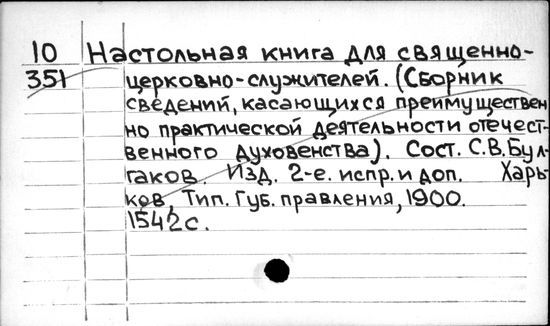 10 Настольная книга для священно-
351 церковно-служителей. (Сборник
сведений, касающихся преимуществен
но практической деятельности отечест-
венного духовенства). Сост. С.В.Бул-
гаков. Изд. 2-е. испр. и доп. Харь-
ков, Тип. Губ. правления, 1900.
1542с.